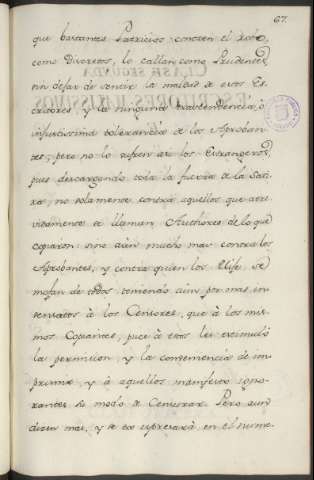 67.
que bastantes Patricios conocen el robo
como Discretos, lo callan como Prudentes,
sin dejar de sentir la maldad de estos Es-
critores y la ninguna trascendencia, ò
injustissima tolerancia de los Aproban-
tes; pero no lo sufren asi los Estrangeros,
pues descargando toda la fuerza de la Sati-
ra, no solamente contra aquellos que atre-
vidamente se llaman Authores de lo que
copiaron: sino aùn mucho mas contra los
Aprobantes, y contra quien los elije, se
mofan de todos teniendo aùn por mas in-
sensatos à los Censores, que à los mis-
mos Copiantes, pues à estos les estimulò
la permision, y la conveniencia de im-
primir, y à aquellos manifesto igno-
rantes su modo de Censurar. Pero aun
dicen mas, y se expresarà en el nume-